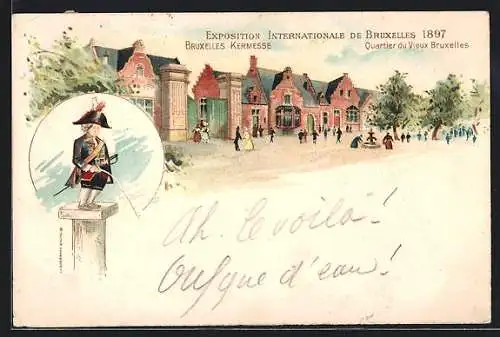 EXPOSITION INTERNATIONALE DE BRUXELLES 1897
BRUXELLES-KERMESSE Quartier du Vieux Bruxelles
Ah. le voilà!
Ousque d'eau!